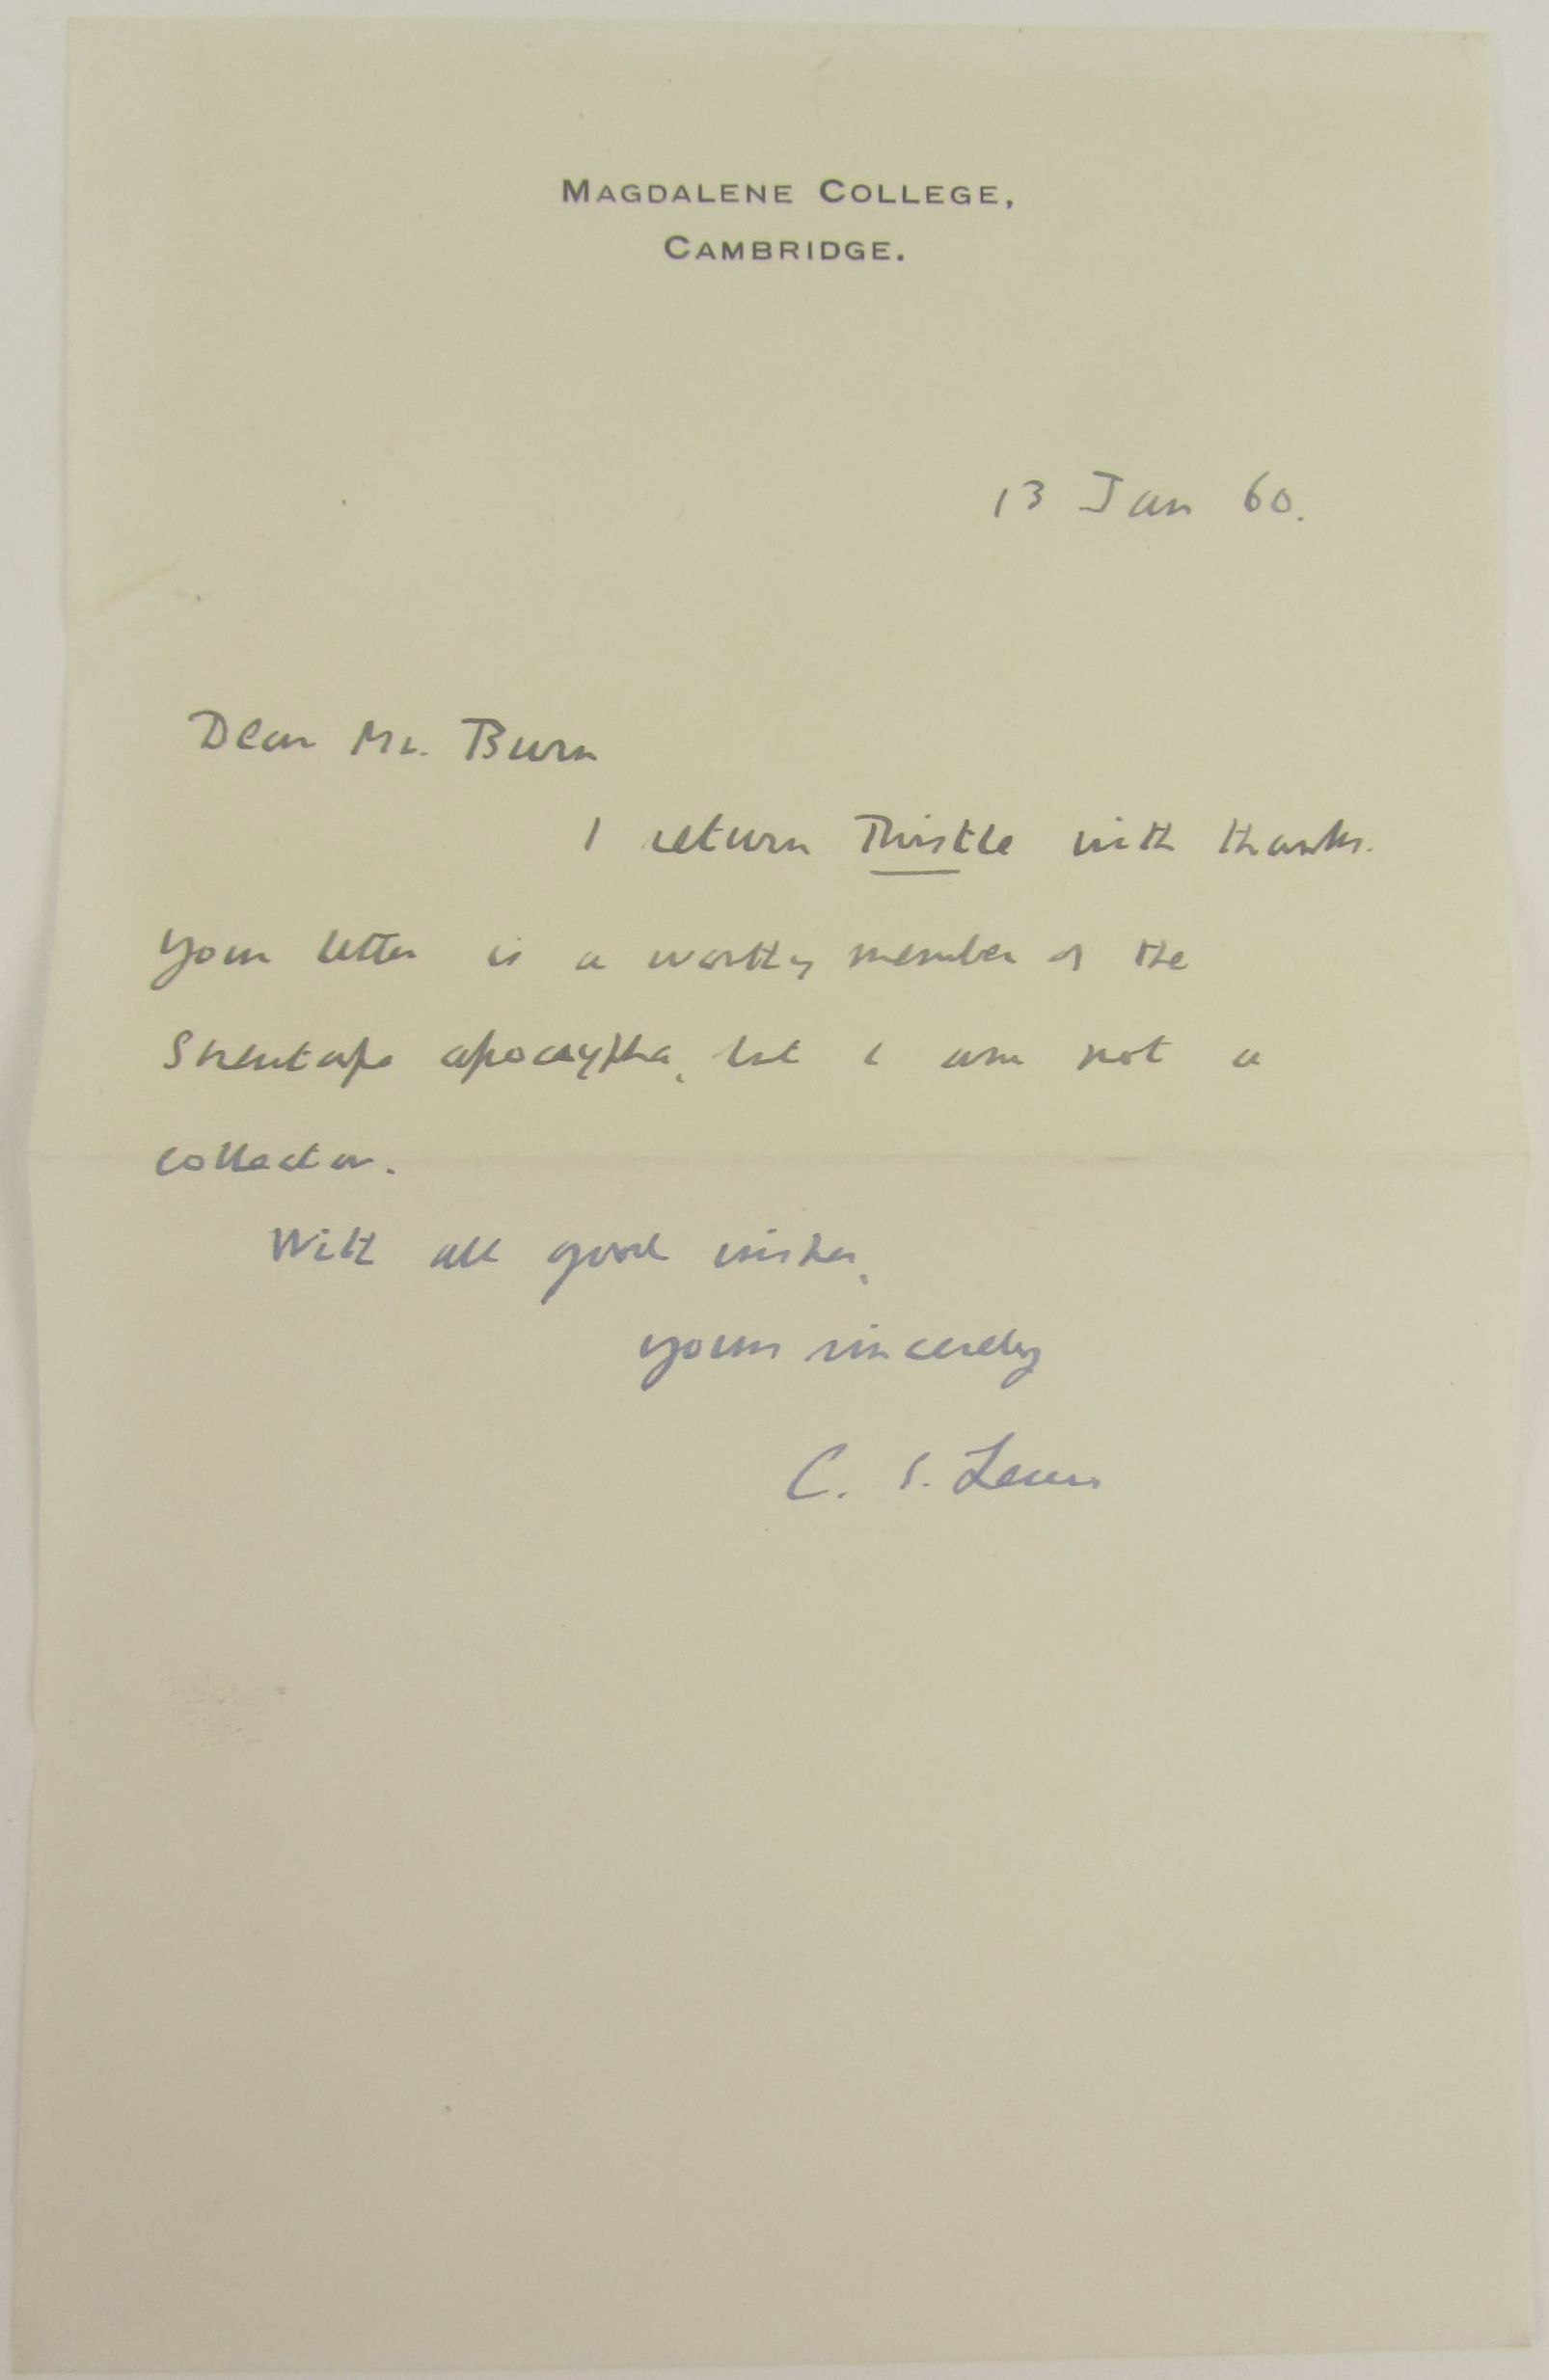 MAGDALENE COLLEGE,
CAMBRIDGE.
13 Jan 60.
Dear Mr. Burn
I return Thistle with thanks.
Your letter is a worthy member of the
Screwtape apocrypha, but I am not a
collector.
With all good wishes,
yours sincerely
C. S. Lewis